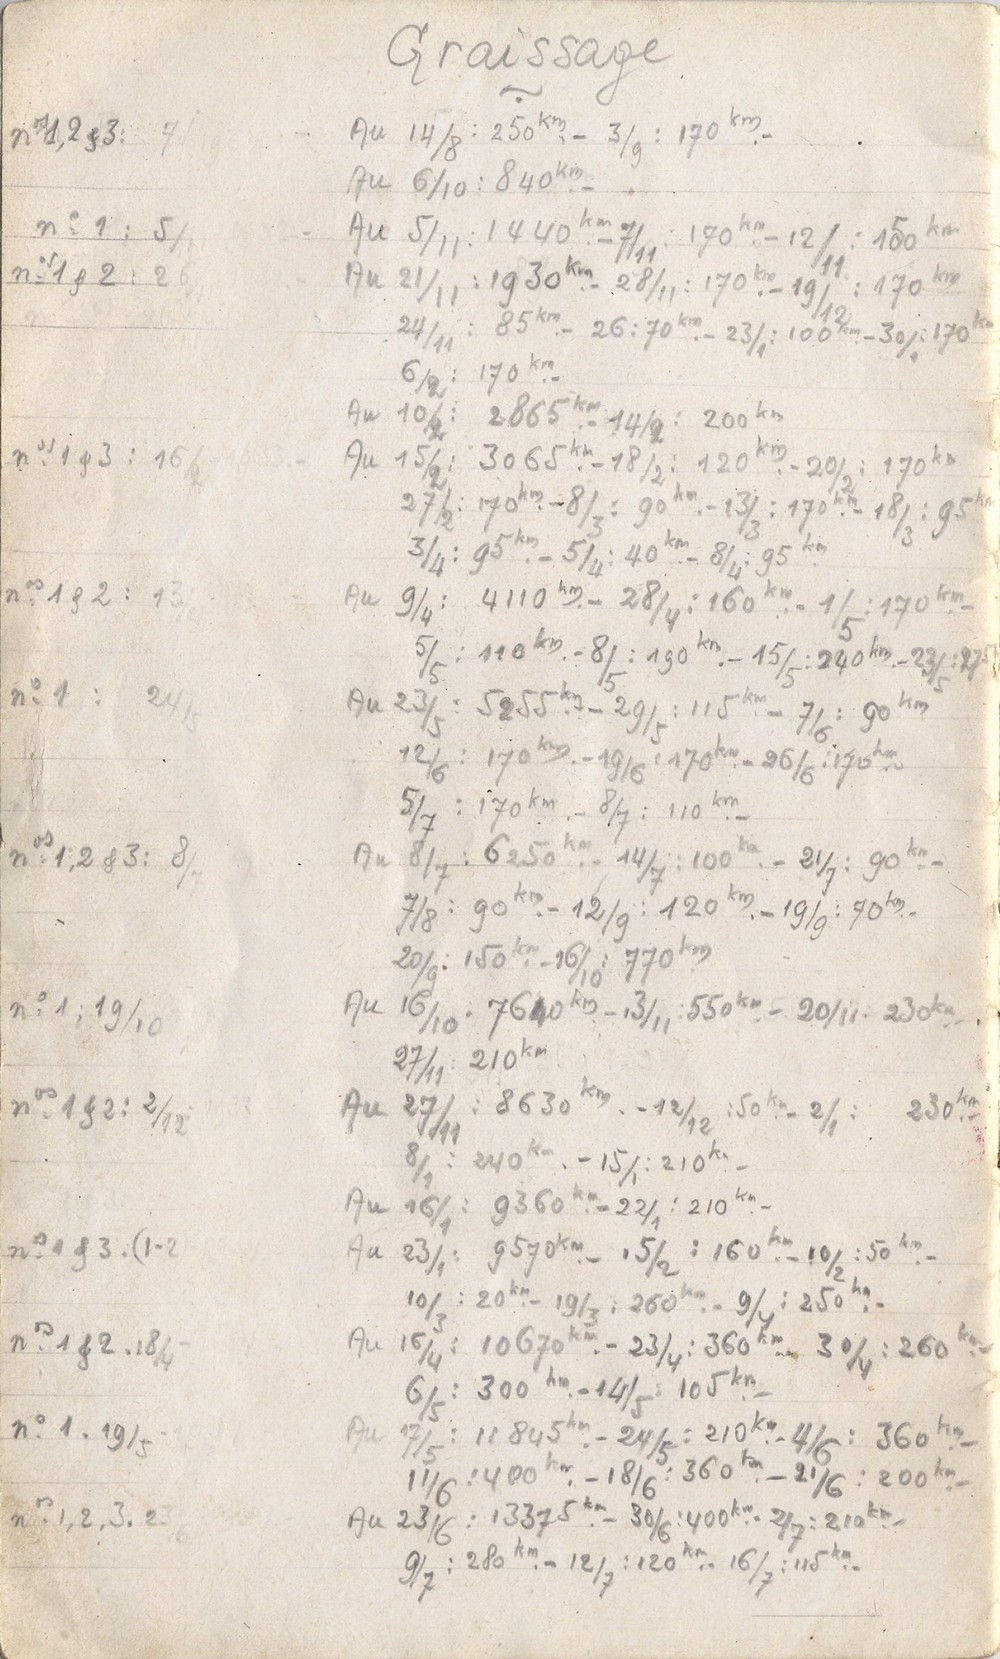 Graissage
nos 1, 2 & 3: 7/ - Au 14/8 : 250 km.- 3/9 : 170 km.-
Au 6/10 : 840 km.-
no 1 : 5/ - Au 5/11 : 1440 km.- 7/11 : 170 km.- 12/11 : 150 km
nos 1 & 2 : 26 - Au 21/11 : 1930 km.- 28/11 : 170 km.- 19/12 : 170 km
24/11 : 85 km.- 26 : 70 km.- 23/1 : 100 km.- 30/1 : 170 km
6/2 : 170 km.-
Au 10/2 : 2865 km.- 14/2 : 200 km
nos 1 & 3 : 16/2 - Au 15/2 : 3065 km.- 18/2 : 120 km.- 20/2 : 170 km
27/2 : 170 km.- 8/3 : 90 km.- 13/3 : 170 km.- 18/3 : 95 km
3/4 : 95 km.- 5/4 : 40 km.- 8/4 : 95 km
nos 1 & 2 : 13/ - Au 9/4 : 4110 km.- 28/4 : 160 km.- 1/5 : 170 km.-
5/5 : 110 km.- 8/5 : 190 km.- 15/5 : 240 km.- 23/5 : 275
no 1 : 24/5 Au 23/5 : 5255 km.- 29/5 : 115 km.- 7/6 : 90 km
12/6 : 170 km.- 19/6 : 170 km.- 26/6 : 170 km.
5/7 : 170 km.- 8/7 : 110 km.-
nos 1, 2 & 3 : 8/7 Au 8/7 : 6250 km.- 14/7 : 100 km.- 21/7 : 90 km.-
7/8 : 90 km.- 12/9 : 120 km.- 19/9 : 70 km.-
20/9 : 150 km.- 16/10 : 770 km
no 1 : 19/10 Au 16/10 : 7640 km.- 13/11 : 550 km.- 20/11 : 230 km.-
27/11 : 210 km
nos 1 & 2 : 2/12 Au 27/11 : 8630 km.- 12/12 : 50 km.- 2/1 : 230 km.-
8/1 : 240 km.- 15/1 : 210 km.-
Au 16/1 : 9360 km.- 22/1 : 210 km.-
nos 1 & 3 . (1-2 Au 23/1 : 9570 km.- 15/2 : 160 km.- 10/2 : 50 km.-
10/3 : 20 km.- 19/3 : 260 km.- 9/4 : 250 km.-
nos 1 & 2 . 18/4 - Au 16/4 : 10670 km.- 23/4 : 360 km.- 30/4 : 260 km.-
6/5 : 300 km.- 14/5 : 105 km.-
no 1 . 19/5 Au 17/5 : 11845 km.- 24/5 : 210 km.- 4/6 : 360 km.-
11/6 : 400 km.- 18/6 : 360 km.- 21/6 : 200 km.-
nos 1, 2, 3. 23/6 Au 23/6 : 13375 km.- 30/6 : 400 km.- 2/7 : 210 km.-
9/7 : 280 km.- 12/7 : 120 km.- 16/7 : 115 km.-